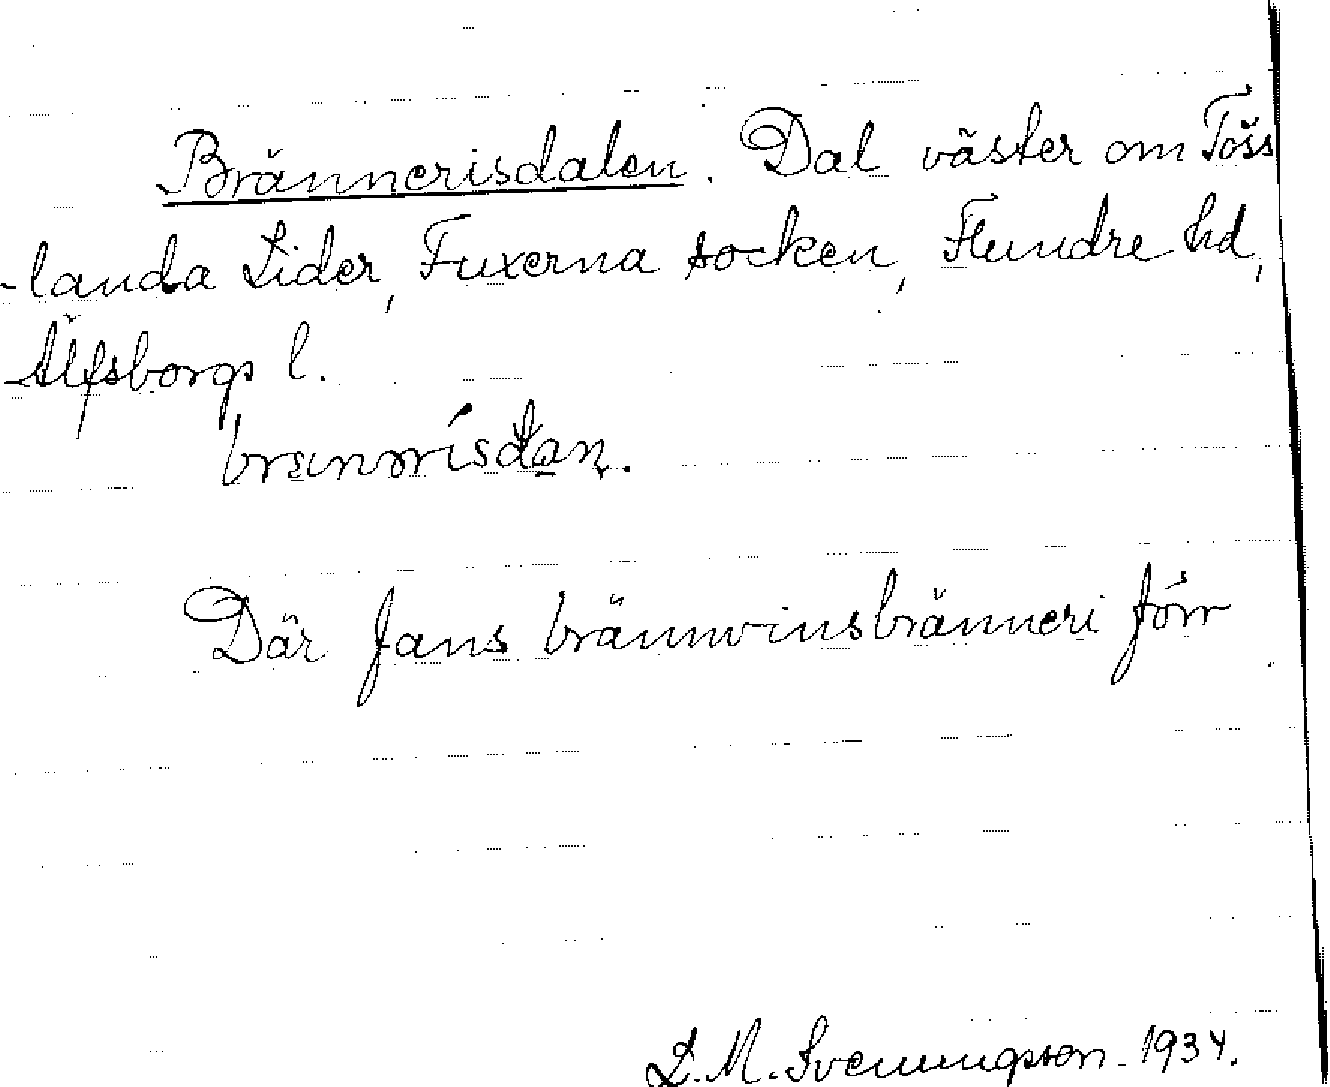 Brännerisdalen. Dal väster om Töss
-landa Lider, Fuxerna socken, Flundre hd,
Älfsborgs l.
Där fans brännvinsbränneri förr
L. M. Svenungson. 1934.